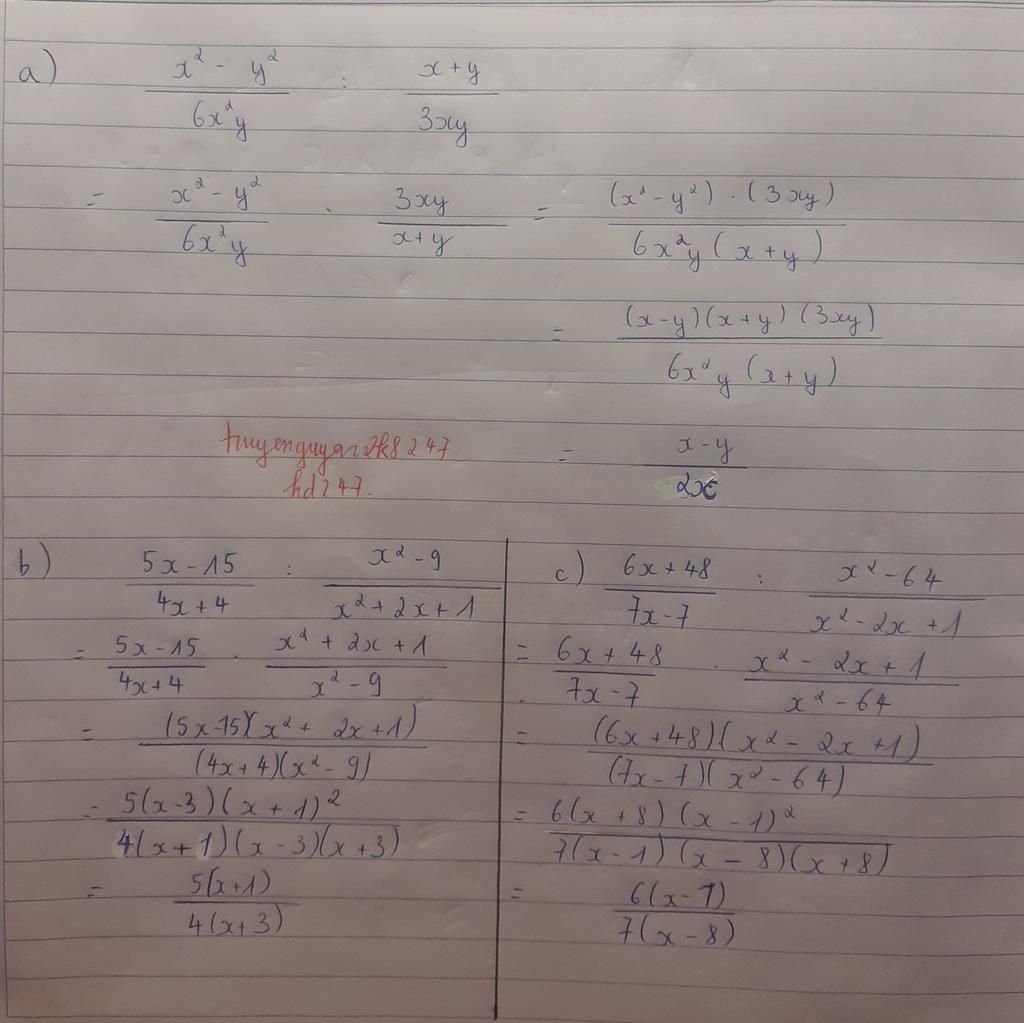 a) (x² - y²)/(6x²y) : (x+y)/(3xy)
= (x² - y²)/(6x²y) . (3xy)/(x+y) = ((x² - y²) . (3xy))/(6x²y (x+y))
= ((x-y)(x+y)(3xy))/(6x²y (x+y))
= (x-y)/(2x)
hd247.
b) (5x-15)/(4x+4) : (x²-9)/(x²+2x+1)
= (5x-15)/(4x+4) . (x²+2x+1)/(x²-9)
= ((5x-15)(x²+2x+1))/((4x+4)(x²-9))
= (5(x-3)(x+1)²)/(4(x+1)(x-3)(x+3))
= (5(x+1))/(4(x+3))
c) (6x+48)/(7x-7) : (x²-64)/(x²-2x+1)
= (6x+48)/(7x-7) . (x²-2x+1)/(x²-64)
= ((6x+48)(x²-2x+1))/((7x-7)(x²-64))
= (6(x+8)(x-1)²)/(7(x-1)(x-8)(x+8))
= (6(x-1))/(7(x-8))